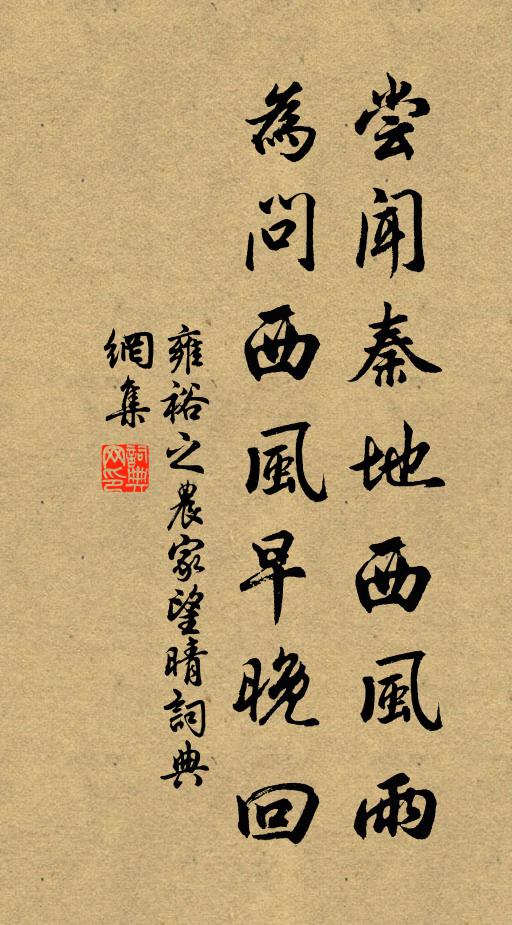 尝闻秦地西风雨
為問西風早晚回
雍裕之農家望晴詞典
網集
詞典網印